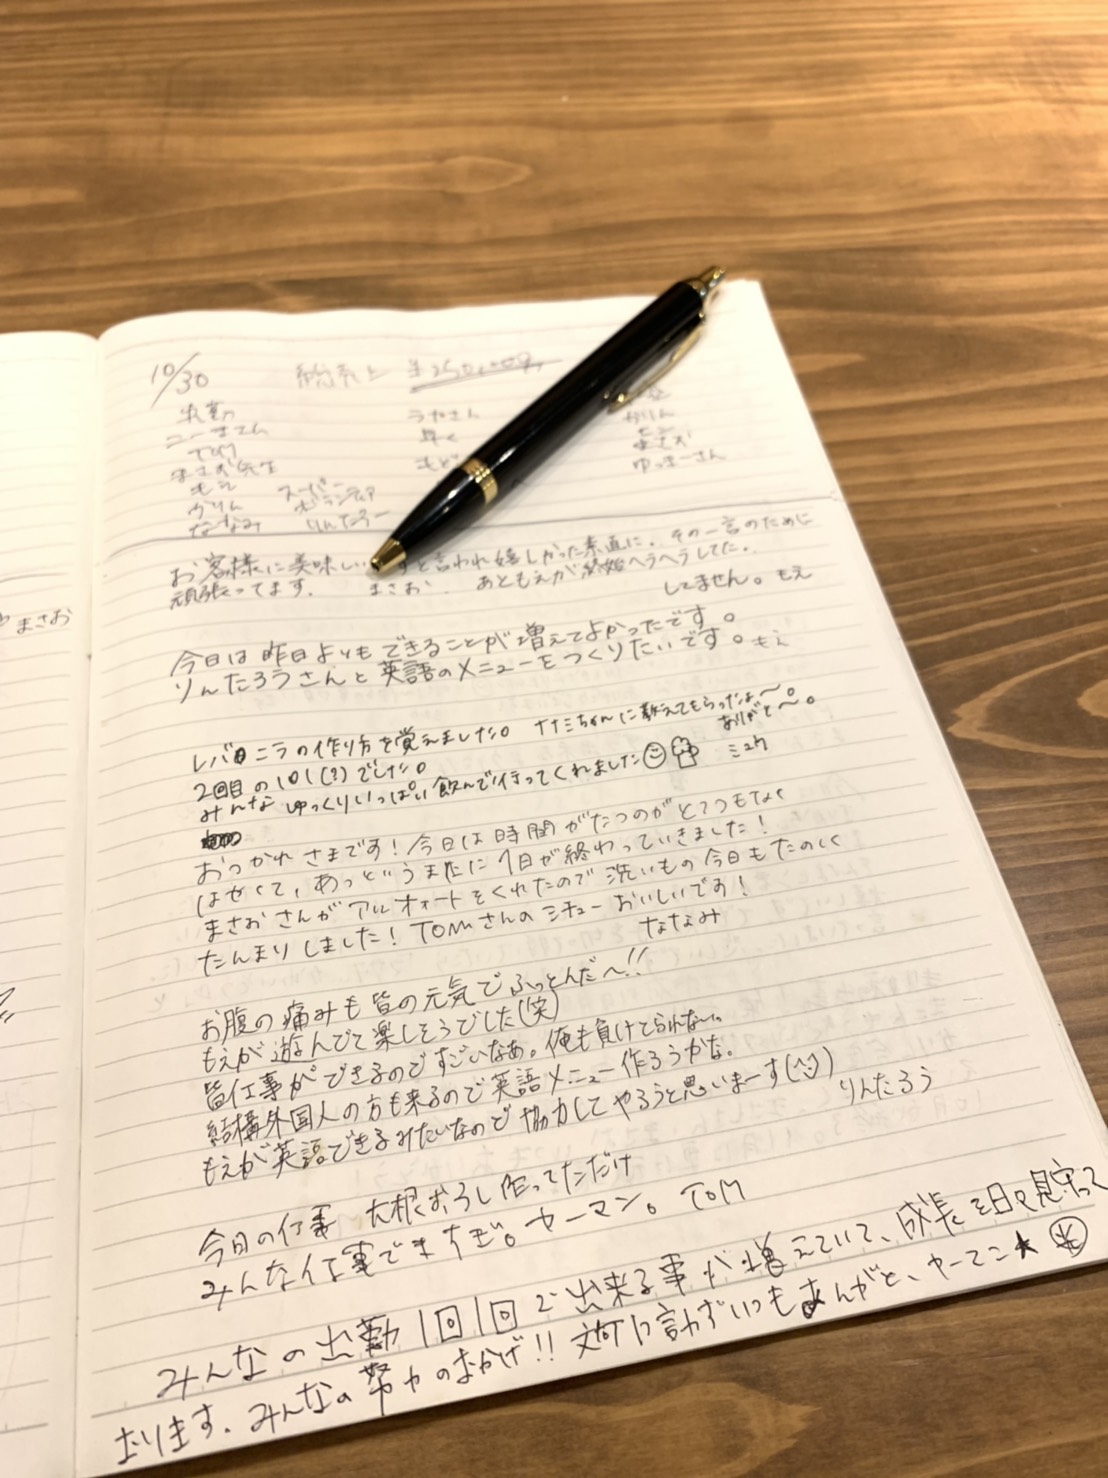 10/30
出勤
TOM
まさお先生
もえ
かりん
ななみ
スーパー
ボランティア
りんたろー
かりん
まさお
ゆっきーさん
まさお
お客様に美味しい すと言われ嬉しかった素直に。その一言のために
頑張ってます。 まさお あともえが終始ヘラヘラしてた。
してません。もえ
今日は昨日よりもできることが増えてよかったです。
りんたろうさんと英語のメニューをつくりたいです。もえ
レバニラの作り方を覚えました。ナナミちゃんに教えてもらったよ〜。
ありがと〜。
2回目の101(?)でした。
みんなゆっくりいっぱい飲んで行ってくれました ミユウ
おつかれさまです!今日は時間がたつのがとてつもなく
はやくて、あっというまに1日が終わっていきました!
まさおさんがアルフォートをくれたので洗いもの今日もたのしく
たんまりしました!TOMさんのシチューおいしいです!
ななみ
お腹の痛みも皆の元気でふっとんだ〜!!
もえが遊んでて楽しそうでした(笑)
皆仕事ができるのですごいなぁ。俺も負けてられない。
結構外国人の方も来るので英語メニュー作ろうかな。
もえが英語できるみたいなので協力してやろうと思いまーす(^^)
りんたろう
今日の仕事 大根おろし作ってただけ
みんな仕事できすぎ。ヤーマン。TOM
みんなの出勤1回1回で出来る事が増えていて、成長を日々見守って
おります。みんなの努力のおかげ!!文句1つ言わずいつもあんがと、